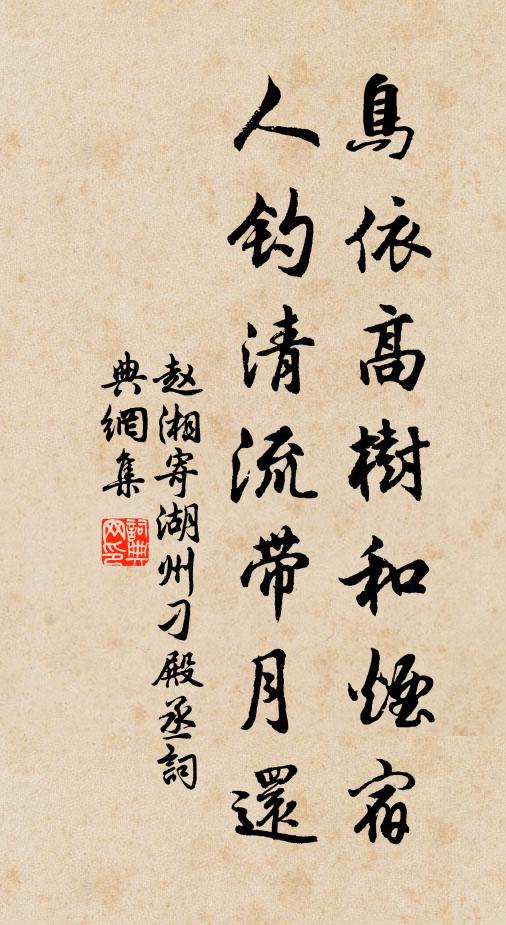 鳥依高樹和煙宿
人钓清流带月還
赵湘寄湖州刁殿丞詞
典網集
詞典网印